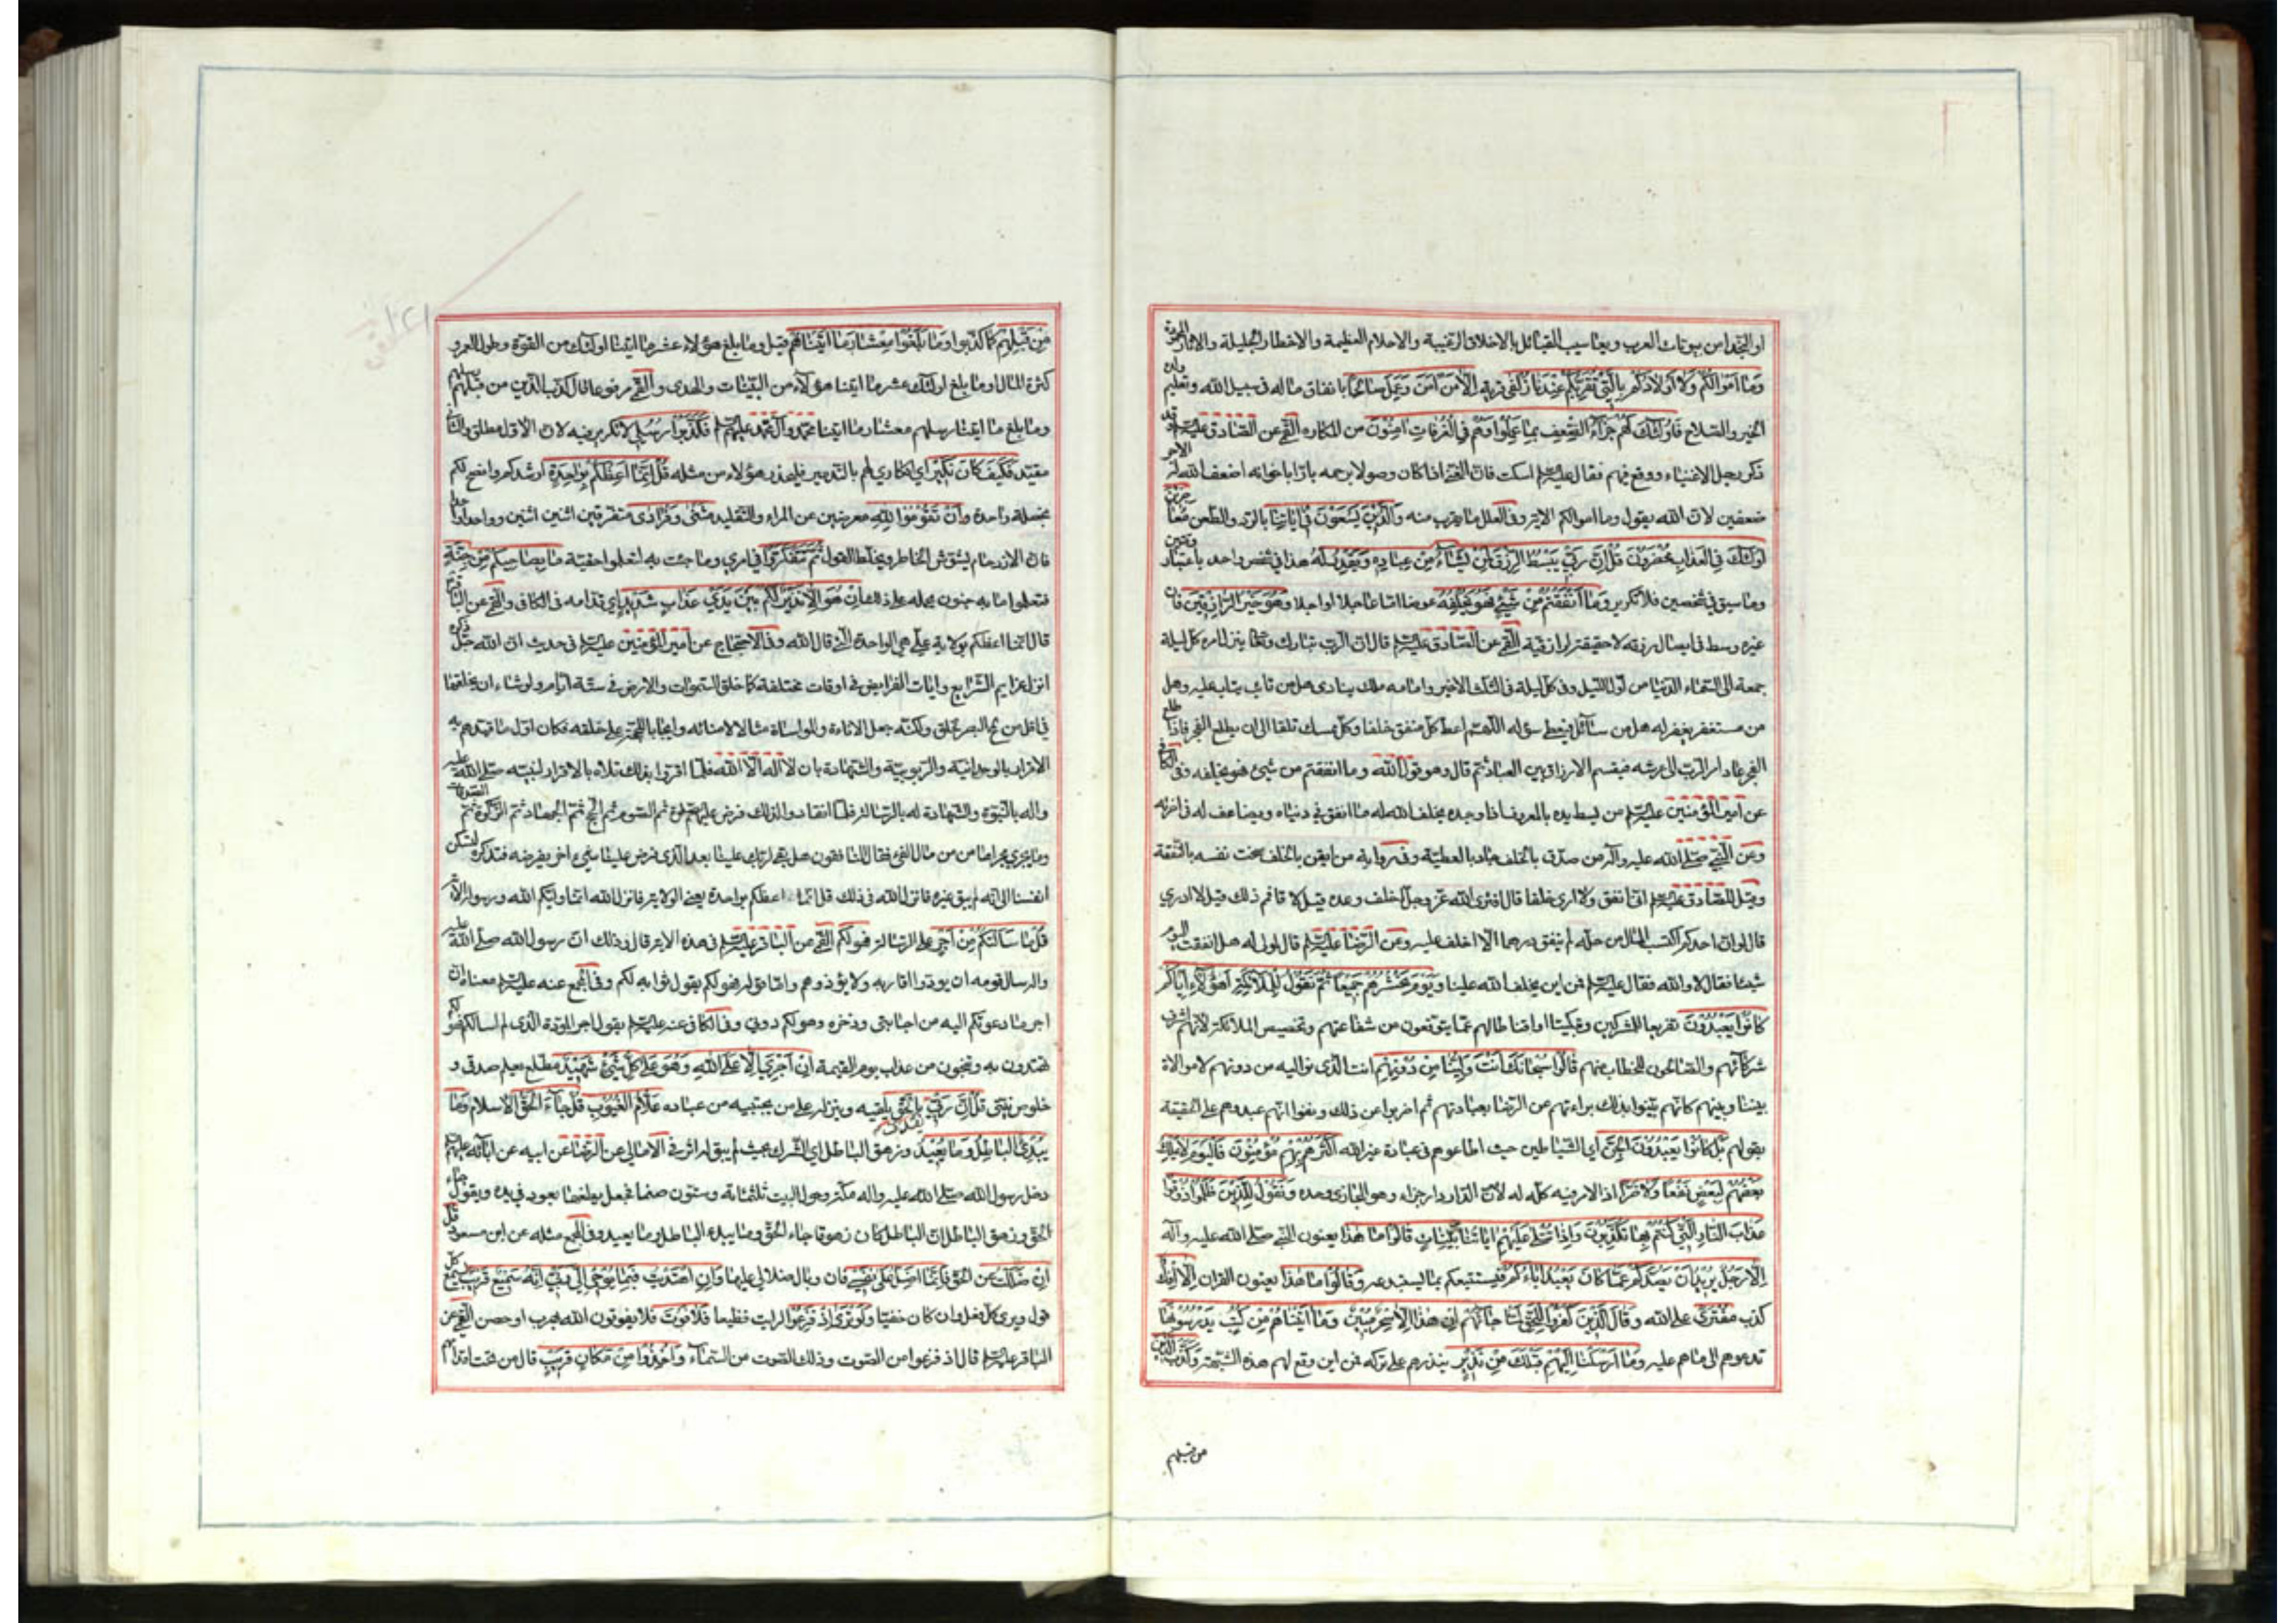 او النجداء من بيوتات العرب ويعاسيب القبائل بالاخلاق الرغيبة والاحلام العظيمة والاخطار الجليلة والاثار المحمودة
وَمَا اَمْوَالُكُمْ وَلَا اَوْلَادُكُمْ بِالَّتِي تُقَرِّبُكُمْ عِنْدَنَا زُلْفٰى قربة اِلَّا مَنْ اٰمَنَ وَعَمِلَ صَالِحًا بانفاق ماله في سبيل الله وتعليم ولده
الخير والصلاح فَاُولٰئِكَ لَهُمْ جَزَاءُ الضِّعْفِ بِمَا عَمِلُوا وَهُمْ فِي الْغُرُفَاتِ اٰمِنُونَ من المكاره القمي عن الصادق عليه السلم وقد
ذكر رجل الاغنياء ووقع فيهم فقال عليه السلم اسكت فان الغني اذا كان وصولا برحمه بارا باخوانه اضعف الله له الاجر
ضعفين لان الله يقول وما اموالكم الاية وفي العلل ما يقرب منه وَالَّذِينَ يَسْعَوْنَ فِي اٰيَاتِنَا بالرد والطعن مُعَاجِزِينَ
اُولٰئِكَ فِي الْعَذَابِ مُحْضَرُونَ قُلْ اِنَّ رَبِّي يَبْسُطُ الرِّزْقَ لِمَنْ يَشَاءُ مِنْ عِبَادِهِ وَيَقْدِرُ لَهُ هذا في شخص واحد باعتبار وقتين
وما سبق في شخصين فلا تكرير وَمَا اَنْفَقْتُمْ مِنْ شَيْءٍ فَهُوَ يُخْلِفُهُ عوضا اما عاجلا او اجلا وَهُوَ خَيْرُ الرَّازِقِينَ فان
غيره وسط في ايصال رزقه لا حقيقة لرازقيته القمي عن الصادق عليه السلم قال ان الرب تبارك وتعالى ينزل امره كل ليلة
جمعة الى السماء الدنيا من اول الليل وفي كل ليلة في الثلث الاخير وامامه ملك ينادي هل من تائب يتاب عليه وهل
من مستغفر يغفر له هل من سائل فيعطى سؤله اللهم اعط كل منفق خلفا وكل ممسك تلفا الى ان يطلع الفجر فاذا طلع
الفجر عاد امر الرب الى عرشه فيقسم الارزاق بين العباد ثم قال وهو قول الله وما انفقتم من شيء فهو يخلفه وفي الكافي
عن امير المؤمنين عليه السلم من يبسط يده بالمعروف اذا وجده يخلف الله له ما انفق في دنياه ويضاعف له في اخرته
وعن النبي صلى الله عليه واله من صدق بالخلف جاد بالعطية وفي رواية من ايقن بالخلف سخت نفسه بالنفقة
وقيل للصادق عليه السلم اني انفق ولا ارى خلفا قال افترى الله عز وجل اخلف وعده قيل لا قال فمم ذلك قيل لا ادري
قال لو ان احدكم اكتسب المال من حله لم ينفق درهما الا اخلف عليه وعن الرضا عليه السلم قال لمولى له هل انفقت اليوم
شيئا فقال لا والله فقال عليه السلم فمن اين يخلف الله علينا وَيَوْمَ نَحْشُرُهُمْ جَمِيعًا ثُمَّ نَقُولُ لِلْمَلَائِكَةِ اَهٰؤُلَاءِ اِيَّاكُمْ
كَانُوا يَعْبُدُونَ تقريعا للمشركين وتبكيتا واقناطا لهم عما يتوقعون من شفاعتهم وتخصيص الملائكة لانهم اشرف
شركائهم والصالحون للخطاب منهم قَالُوا سُبْحَانَكَ اَنْتَ وَلِيُّنَا مِنْ دُونِهِمْ انت الذي نواليه من دونهم لا موالاة
بيننا وبينهم كانهم بينوا بذلك براءتهم عن الرضا بعبادتهم ثم اضربوا عن ذلك ونفوا انهم عبدوهم على الحقيقة
بقولهم بَلْ كَانُوا يَعْبُدُونَ الْجِنَّ اي الشياطين حيث اطاعوهم في عبادة غير الله اَكْثَرُهُمْ بِهِمْ مُؤْمِنُونَ فَالْيَوْمَ لَا يَمْلِكُ
بَعْضُكُمْ لِبَعْضٍ نَفْعًا وَلَا ضَرًّا اذ الامر فيه كله له لان الدار دار جزاء وهو المجازي وحده وَنَقُولُ لِلَّذِينَ ظَلَمُوا ذُوقُوا
عَذَابَ النَّارِ الَّتِي كُنْتُمْ بِهَا تُكَذِّبُونَ وَاِذَا تُتْلٰى عَلَيْهِمْ اٰيَاتُنَا بَيِّنَاتٍ قَالُوا مَا هٰذَا يعنون النبي صلى الله عليه واله
اِلَّا رَجُلٌ يُرِيدُ اَنْ يَصُدَّكُمْ عَمَّا كَانَ يَعْبُدُ اٰبَاؤُكُمْ فيستتبعكم بما يستبدعه وَقَالُوا مَا هٰذَا يعنون القران اِلَّا اِفْكٌ
كذب مُفْتَرًى على الله وَقَالَ الَّذِينَ كَفَرُوا لِلْحَقِّ لَمَّا جَاءَهُمْ اِنْ هٰذَا اِلَّا سِحْرٌ مُبِينٌ وَمَا اٰتَيْنَاهُمْ مِنْ كُتُبٍ يَدْرُسُونَهَا
تدعوهم الى ما هم عليه وَمَا اَرْسَلْنَا اِلَيْهِمْ قَبْلَكَ مِنْ نَذِيرٍ ينذرهم على تركه فمن اين وقع لهم هذه الشبهة وَكَذَّبَ الَّذِينَ
من قبلهم
مِنْ قَبْلِهِمْ كما كذبوا وَمَا بَلَغُوا مِعْشَارَ مَا اٰتَيْنَاهُمْ قيل وما بلغ هؤلاء عشر ما اتينا اولئك من القوة وطول العمر و
كثرة المال او ما بلغ اولئك عشر ما اتينا هؤلاء من البينات والهدى والقمي مرفوعا قال كذب الذين من قبلهم رسلهم
وما بلغ ما اتينا رسلهم معشار ما اتينا محمد وال محمد عليهم السلم فَكَذَّبُوا رُسُلِي لا تكرير فيه لان الاول مطلق والثاني
مقيد فَكَيْفَ كَانَ نَكِيرِ اي انكاري لهم بالتدمير فليحذر هؤلاء من مثله قُلْ اِنَّمَا اَعِظُكُمْ بِوَاحِدَةٍ ارشدكم وانصح لكم
بخصلة واحدة وَاَنْ تَقُومُوا لِلّٰهِ معرضين عن المراء والتقليد مَثْنٰى وَفُرَادٰى متفرقين اثنين اثنين وواحدا واحدا
فان الازدحام يشوش الخاطر ويخلط القول ثُمَّ تَتَفَكَّرُوا في امري وما جئت به لتعلموا حقيته مَا بِصَاحِبِكُمْ مِنْ جِنَّةٍ
فتعلموا ما به جنون يحمله على ذلك اِنْ هُوَ اِلَّا نَذِيرٌ لَكُمْ بَيْنَ يَدَيْ عَذَابٍ شَدِيدٍ اي قدامه في الكافي والقمي عن الباقر
قال انما اعظكم بولاية علي هي الواحدة التي قال الله وفي الاحتجاج عن امير المؤمنين عليه السلم في حديث ان الله جل ذكره
انزل عزايم الشرايع وايات الفرايض في اوقات مختلفة كما خلق السموات والارض في ستة ايام ولو شاء ان يخلقها
في اقل من لمح البصر لخلق ولكنه جعل الاناة والمواساة مثالا لامنائه وايجابا للحجة على خلقه فكان اول ما قيدهم به
الاقرار بالوحدانية والربوبية والشهادة بان لا اله الا الله فلما اقروا بذلك تلاه بالاقرار لنبيه صلى الله عليه
واله بالنبوة والشهادة له بالرسالة فلما انقادوا لذلك فرض عليهم الصلوة ثم الصوم ثم الحج ثم الجهاد ثم الزكوة ثم الصدقات
وما يجري مجراها من مال الفئ فقال المنافقون هل بقي لربك علينا بعد الذي فرض علينا شيء اخر يفرضه فتذكره لتسكن
انفسنا الى انه لم يبق غيره فانزل الله في ذلك قل انما اعظكم بواحدة يعني الولاية فانزل الله انما وليكم الله ورسوله الاية
قُلْ مَا سَاَلْتُكُمْ مِنْ اَجْرٍ على الرسالة فَهُوَ لَكُمْ القمي عن الباقر عليه السلم في هذه الاية قال وذلك ان رسول الله صلى الله عليه
واله سال قومه ان يودوا اقاربه ولا يؤذوهم واما قوله فهو لكم يقول ثوابه لكم وفي المجمع عنه عليه السلم معناه ان
اجر ما دعوتكم اليه من اجابتي وذخره وهو لكم دوني وفي الكافي عنه عليه السلم يقول اجر المودة الذي لم اسالكم فهو لكم
تهتدون به وتنجون من عذاب يوم القيمة اِنْ اَجْرِيَ اِلَّا عَلَى اللّٰهِ وَهُوَ عَلٰى كُلِّ شَيْءٍ شَهِيدٌ مطلع يعلم صدقي و
خلوص نيتي قُلْ اِنَّ رَبِّي يَقْذِفُ بِالْحَقِّ يلقيه وينزله على من يجتبيه من عباده عَلَّامُ الْغُيُوبِ قُلْ جَاءَ الْحَقُّ الاسلام وَمَا
يُبْدِئُ الْبَاطِلُ وَمَا يُعِيدُ وزهق الباطل اي الشرك بحيث لم يبق له اثر في الامالي عن الرضا عن ابيه عن ابائه عليهم السلم
دخل رسول الله صلى الله عليه واله مكة وحول البيت ثلثمائة وستون صنما فجعل يطعنها بعود في يده ويقول جاء
الحق وزهق الباطل ان الباطل كان زهوقا جاء الحق وما يبدئ الباطل وما يعيد وفي المجمع مثله عن ابن مسعود قُلْ
اِنْ ضَلَلْتُ عن الحق فَاِنَّمَا اَضِلُّ عَلٰى نَفْسِي فان وبال ضلالي عليها وَاِنِ اهْتَدَيْتُ فَبِمَا يُوحِي اِلَيَّ رَبِّي اِنَّهُ سَمِيعٌ قَرِيبٌ يسمع كل
قول ويرى كل فعل وان كان خفيا وَلَوْ تَرٰى اِذْ فَزِعُوا لرايت فظيعا فَلَا فَوْتَ فلا يفوتون الله بهرب او حصن القمي عن
الباقر عليه السلم قال اذ فزعوا من الصوت وذلك الصوت من السماء وَاُخِذُوا مِنْ مَكَانٍ قَرِيبٍ قال من تحت اقدامهم